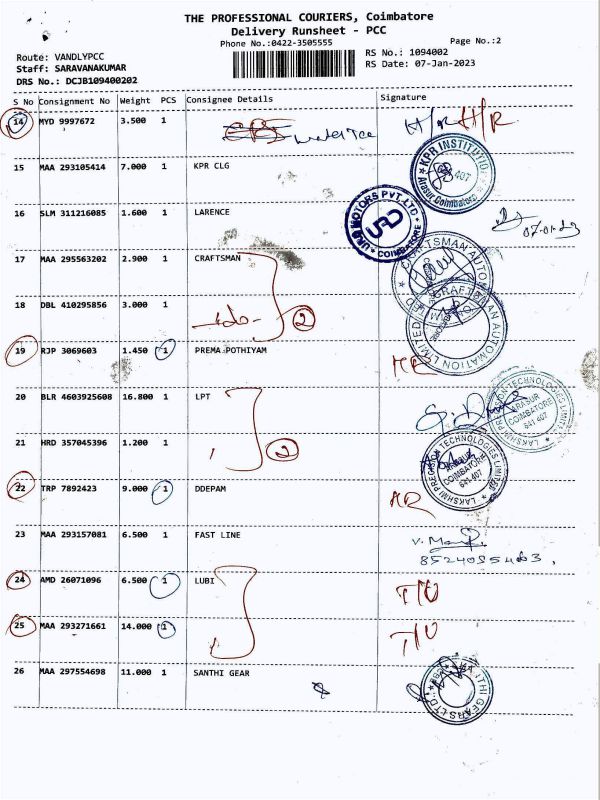 THE PROFESSIONAL COURIERS, Coimbatore
Delivery Runsheet - PCC
Phone No.:0422-3505555
Page No.:2
Route: VANDLYPCC
RS No.: 1094002
Staff: SARAVANAKUMAR
RS Date: 07-Jan-2023
DRS No.: DCJB109400202
S No Consignment No Weight PCS Consignee Details Signature
14 MYD 9997672 3.500 1 H/R H/R
15 MAA 293105414 7.000 1 KPR CLG
KPR INSTITUTIO 407 Arasur Coimbatore
16 SLM 311216085 1.600 1 LARENCE 07-01-23
URD MOTORS PVT. LTD URD COIMBATORE
17 MAA 295563202 2.900 1 CRAFTSMAN
CRAFTSMAN AUTOMATION LIMITED
18 DBL 410295856 3.000 1 2
CRAFTSMAN AUTOMATION LIMITED
19 RJP 3069603 1.450 1 PREMA POTHIYAM
20 BLR 4603925608 16.800 1 LPT
LAKSHMI PRECISION TECHNOLOGIES LIMITED ARASUR COIMBATORE 641 407
21 HRD 357045396 1.200 1 2
LAKSHMI PRECISION TECHNOLOGIES LIMITED ARASUR COIMBATORE 641 407
22 TRP 7892423 9.000 1 DDEPAM
23 MAA 293157081 6.500 1 FAST LINE
24 AMD 26071096 6.500 1 LUBI T/U
25 MAA 293271661 14.000 1 T/U
26 MAA 297554698 11.000 1 SANTHI GEAR
SANTHI GEARS LTD